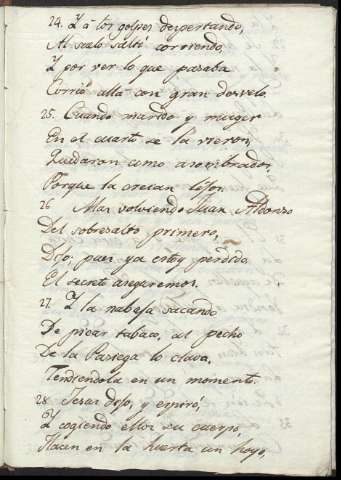 24. Y a los golpes despertando,
Al suelo saltó corriendo,
Y por ver lo que pasaba
Corrió allá con gran desvelo
25. Cuando marido y muger
En el cuarto se la vieron,
Quedaron como asombrados,
Porque la creian lejos.
26 Mas volviendo Juan Alonzo
Del sobresalto primero,
Dijo, pues ya estoy perdido
El secreto aseguremos.
27. Y la nabaja sacando
De picar tabaco, al pecho
De la Pasiega lo clava,
Tendiendola en un momento.
28 Jesus dijo, y espiró,
Y cogiendo ellos su cuerpo,
Hacen en la huerta un hoyo,